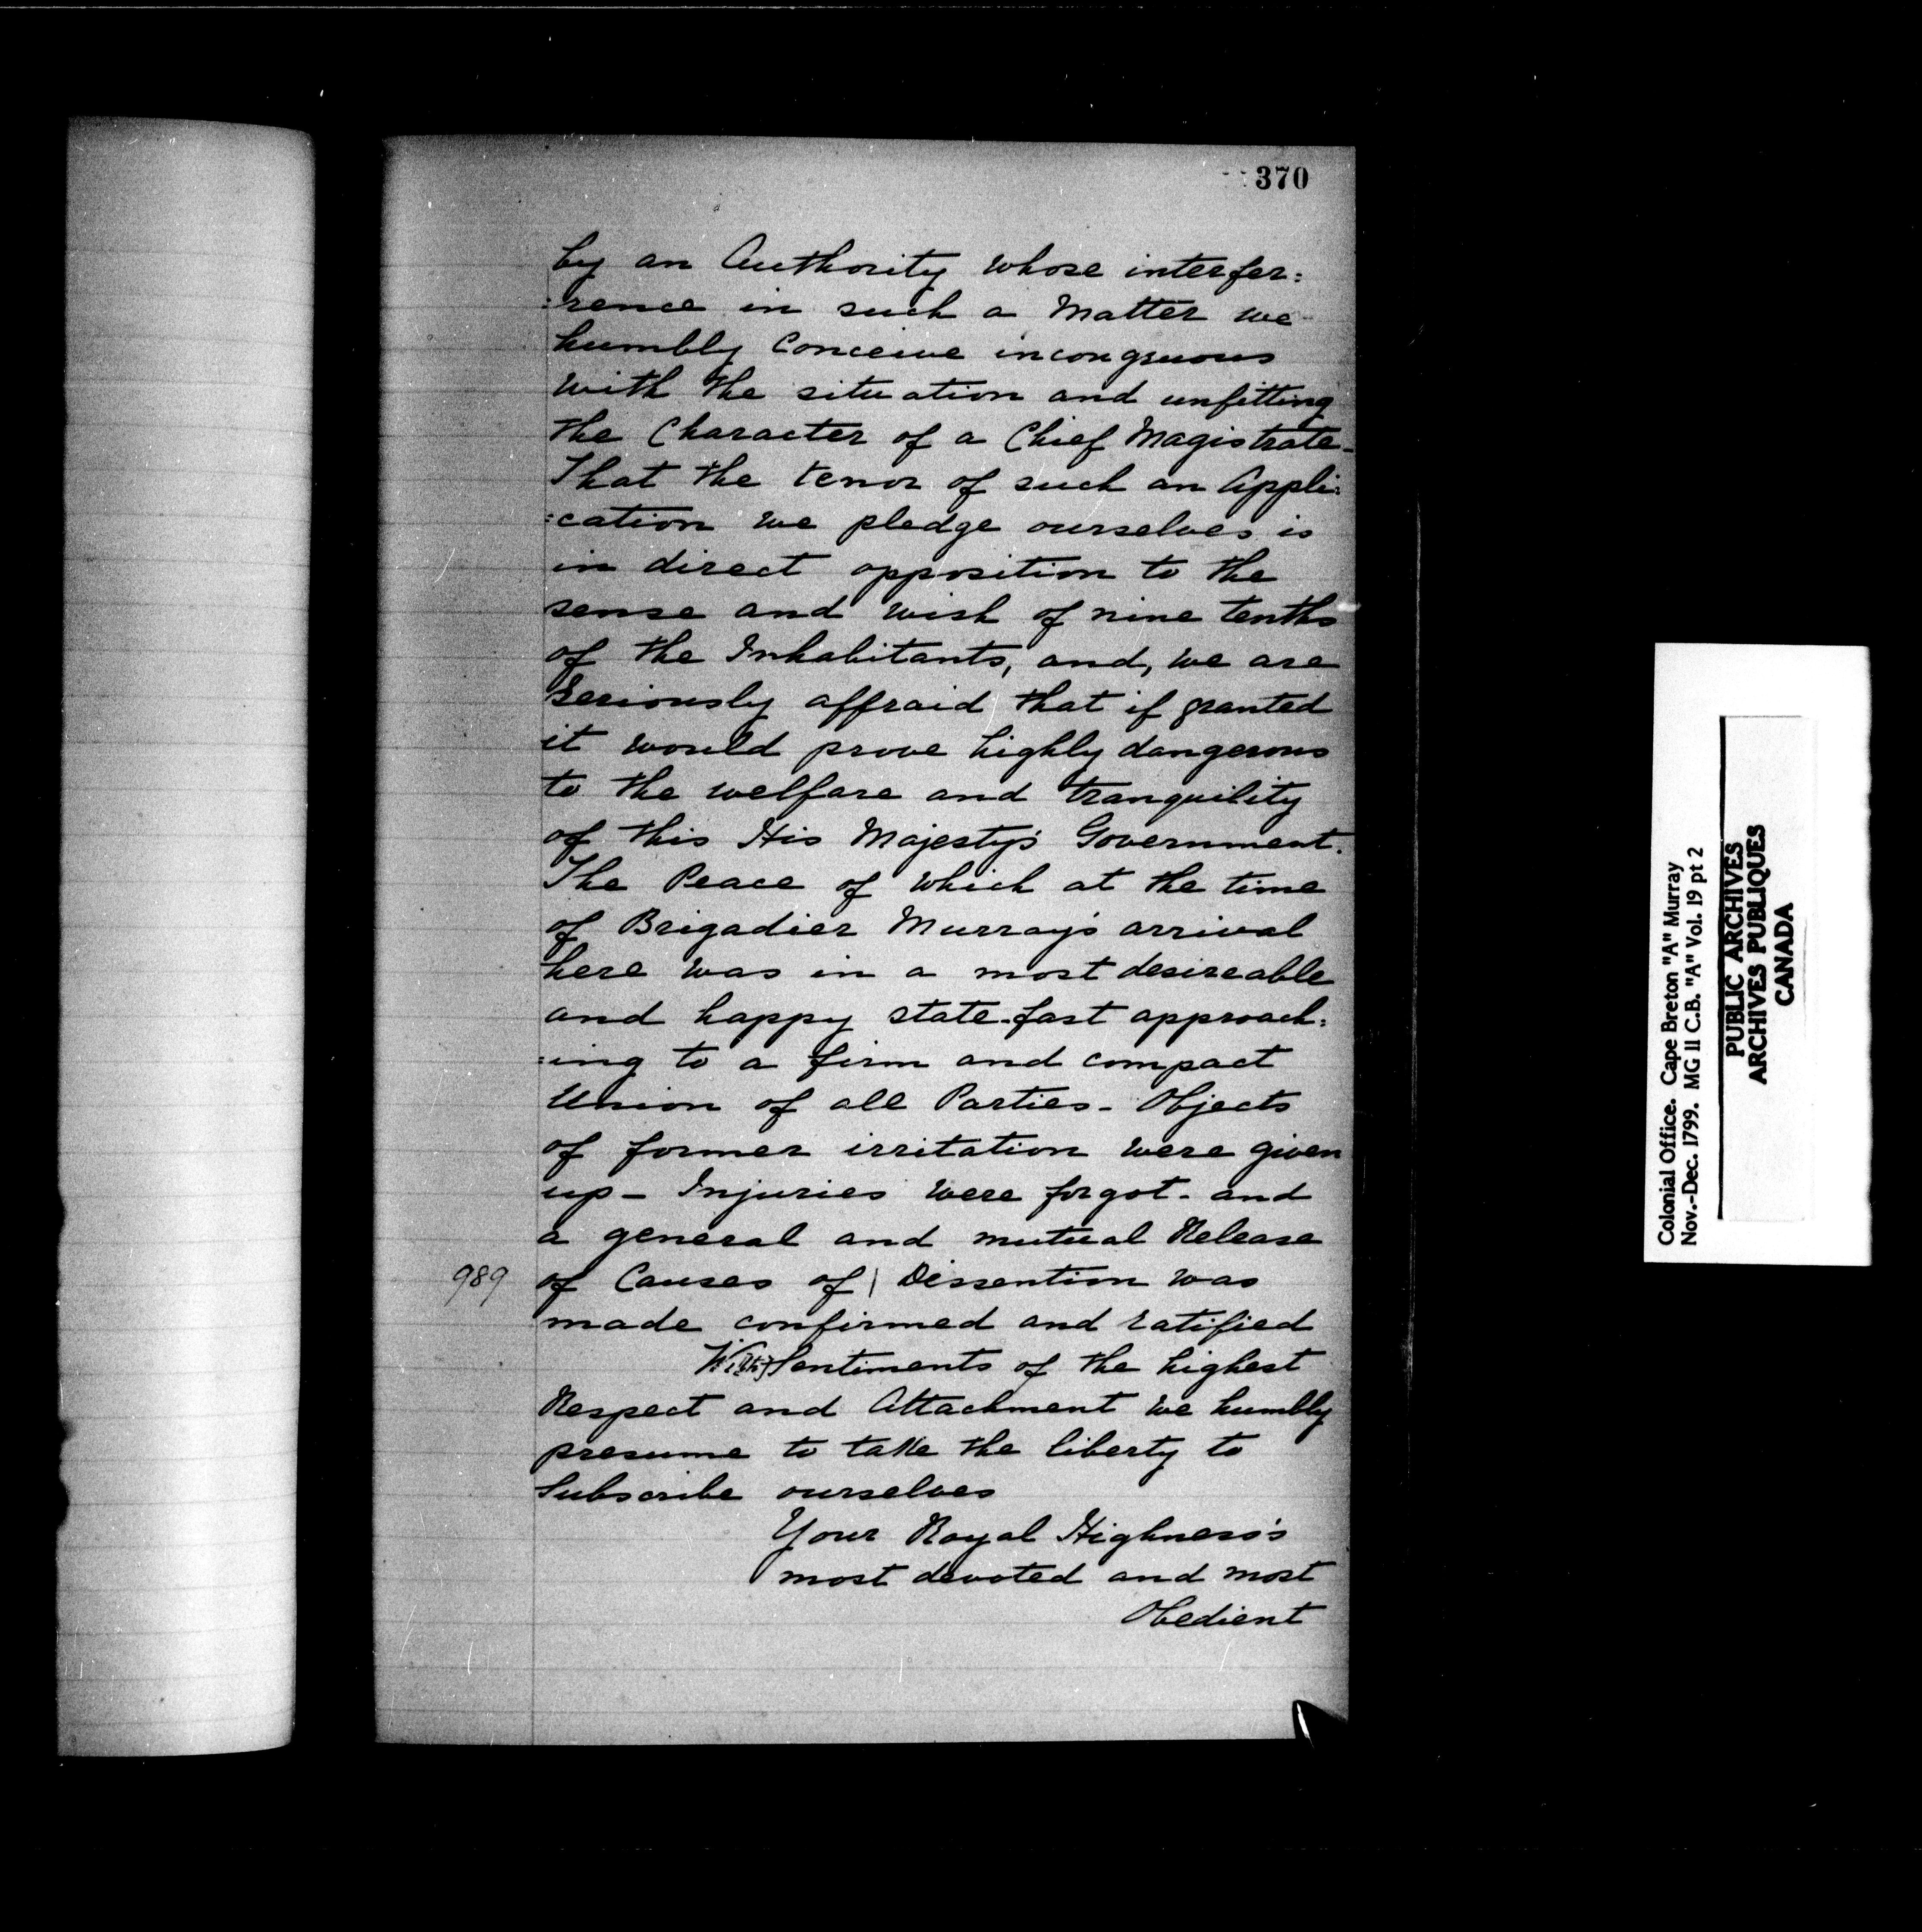 370
by an Authority whose interfer:
:rence in such a Matter we
humbly Conceive incongruous
with the situation and unfitting
the Character of a Chief Magistrate -
That the tenor of such an Appli:
:cation we pledge ourselves is
in direct opposition to the
sense and wish of nine tenths
of the Inhabitants, and, we are
Seriously affraid that if granted
it would prove highly dangerous
to the welfare and tranquility
of this His Majesty's Government.
The Peace of which at the time
of Brigadier Murray's arrival
here was in a most desireable
and happy state - fast approach:
:ing to a firm and compact
Union of all Parties - Objects
of former irritation were given
up - Injuries were forgot - and
a general and mutual Release
989 of Causes of | Dissention was
made confirmed and ratified
With Sentiments of the highest
Respect and Attachment we humbly
presume to take the liberty to
Subscribe ourselves
Your Royal Highness's
most devoted and most
Obedient
Colonial Office. Cape Breton "A" Murray
Nov.-Dec. 1799. MG 11 C.B. "A" Vol. 19 pt 2
PUBLIC ARCHIVES
ARCHIVES PUBLIQUES
CANADA